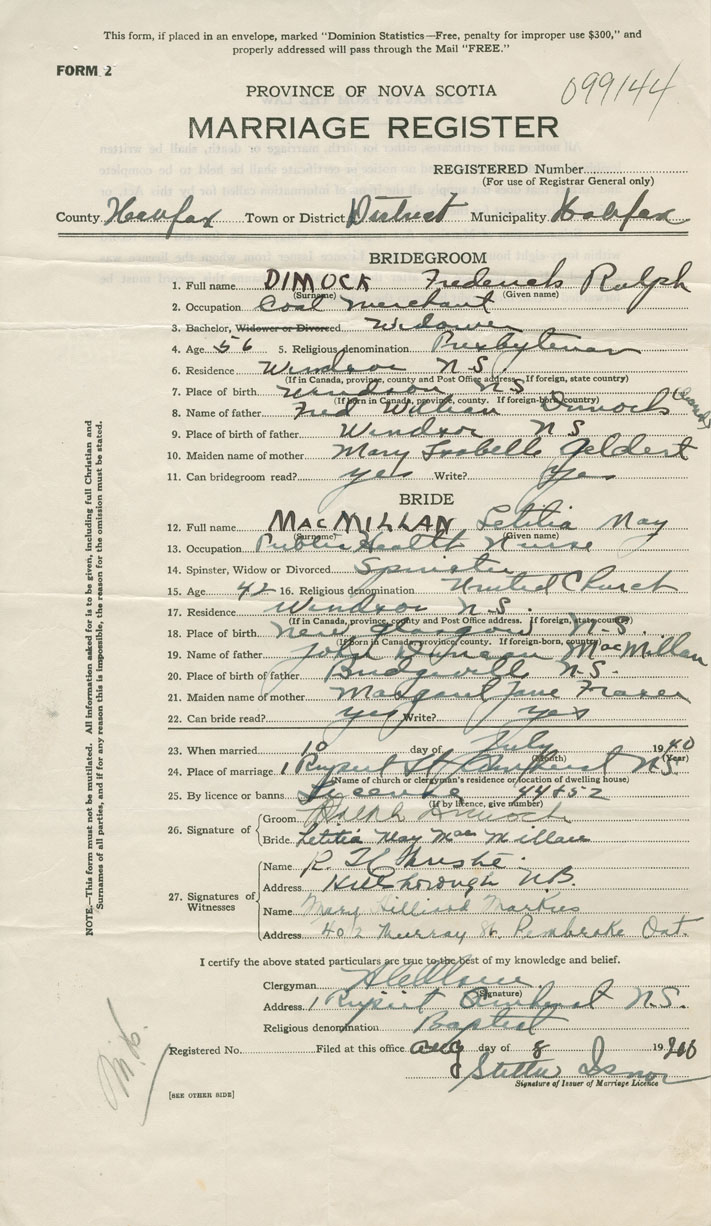 This form, if placed in an envelope, marked "Dominion Statistics—Free, penalty for improper use $300," and
properly addressed will pass through the Mail "FREE."
FORM 2
PROVINCE OF NOVA SCOTIA
099144
MARRIAGE REGISTER
REGISTERED Number
(For use of Registrar General only)
County Halifax Town or District District Municipality Halifax
BRIDEGROOM
1. Full name DIMOCK Frederick Ralph
(Surname) (Given name)
2. Occupation Coal Merchant
3. Bachelor, Widower or Divorced Widower
4. Age 56 5. Religious denomination Presbyterian
6. Residence Windsor N S
(If in Canada, province, county and Post Office address. If foreign, state country)
7. Place of birth Windsor N S
(If born in Canada, province, county. If foreign-born, country)
8. Name of father Fred William Dimock
9. Place of birth of father Windsor N S
10. Maiden name of mother Mary Isabelle Geldert
11. Can bridegroom read? yes Write? yes
BRIDE
12. Full name MACMILLAN Letitia May
(Surname) (Given name)
13. Occupation Public Health Nurse
14. Spinster, Widow or Divorced Spinster
15. Age 42 16. Religious denomination United Church
17. Residence Windsor N.S.
(If in Canada, province, county and Post Office address. If foreign, state country)
18. Place of birth New Glasgow N.S.
(If born in Canada, province, county. If foreign-born, country)
19. Name of father John Duncan MacMillan
20. Place of birth of father Bridgeville N.S.
21. Maiden name of mother Margaret Jane Fraser
22. Can bride read? yes Write? yes
23. When married 10 day of July 1940
(Month) (Year)
24. Place of marriage 1 Rupert St. Amherst N.S.
(Name of church or clergyman's residence or location of dwelling house)
25. By licence or banns Licence 44852
(If by licence, give number)
26. Signature of
Groom Ralph Dimock
Bride Letitia May MacMillan
27. Signatures of
Witnesses
Name R.
Address Hillsborough N.B.
Name Mary
Address 402 Murray St. Pembroke Ont.
I certify the above stated particulars are true to the best of my knowledge and belief.
Clergyman
(Signature)
Address 1 Rupert Amherst N.S.
Religious denomination Baptist
Registered No. Filed at this office Aug day of 8 19
Signature of Issuer of Marriage Licence
[SEE OTHER SIDE]
NOTE.—This form must not be mutilated. All information asked for is to be given, including full Christian and
Surnames of all parties, and if for any reason this is impossible, the reason for the omission must be stated.